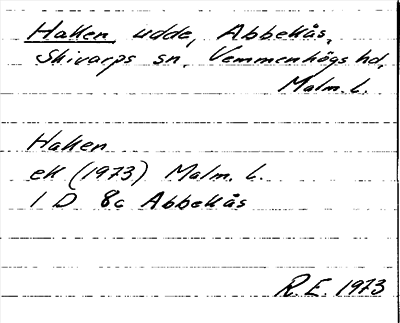 Haken, udde, Abbekås,
Skivarps sn, Vemmenhögs hd,
Malm. l.
Haken
ek (1973) Malm. l.
1 D 8c Abbekås
R.E. 1973